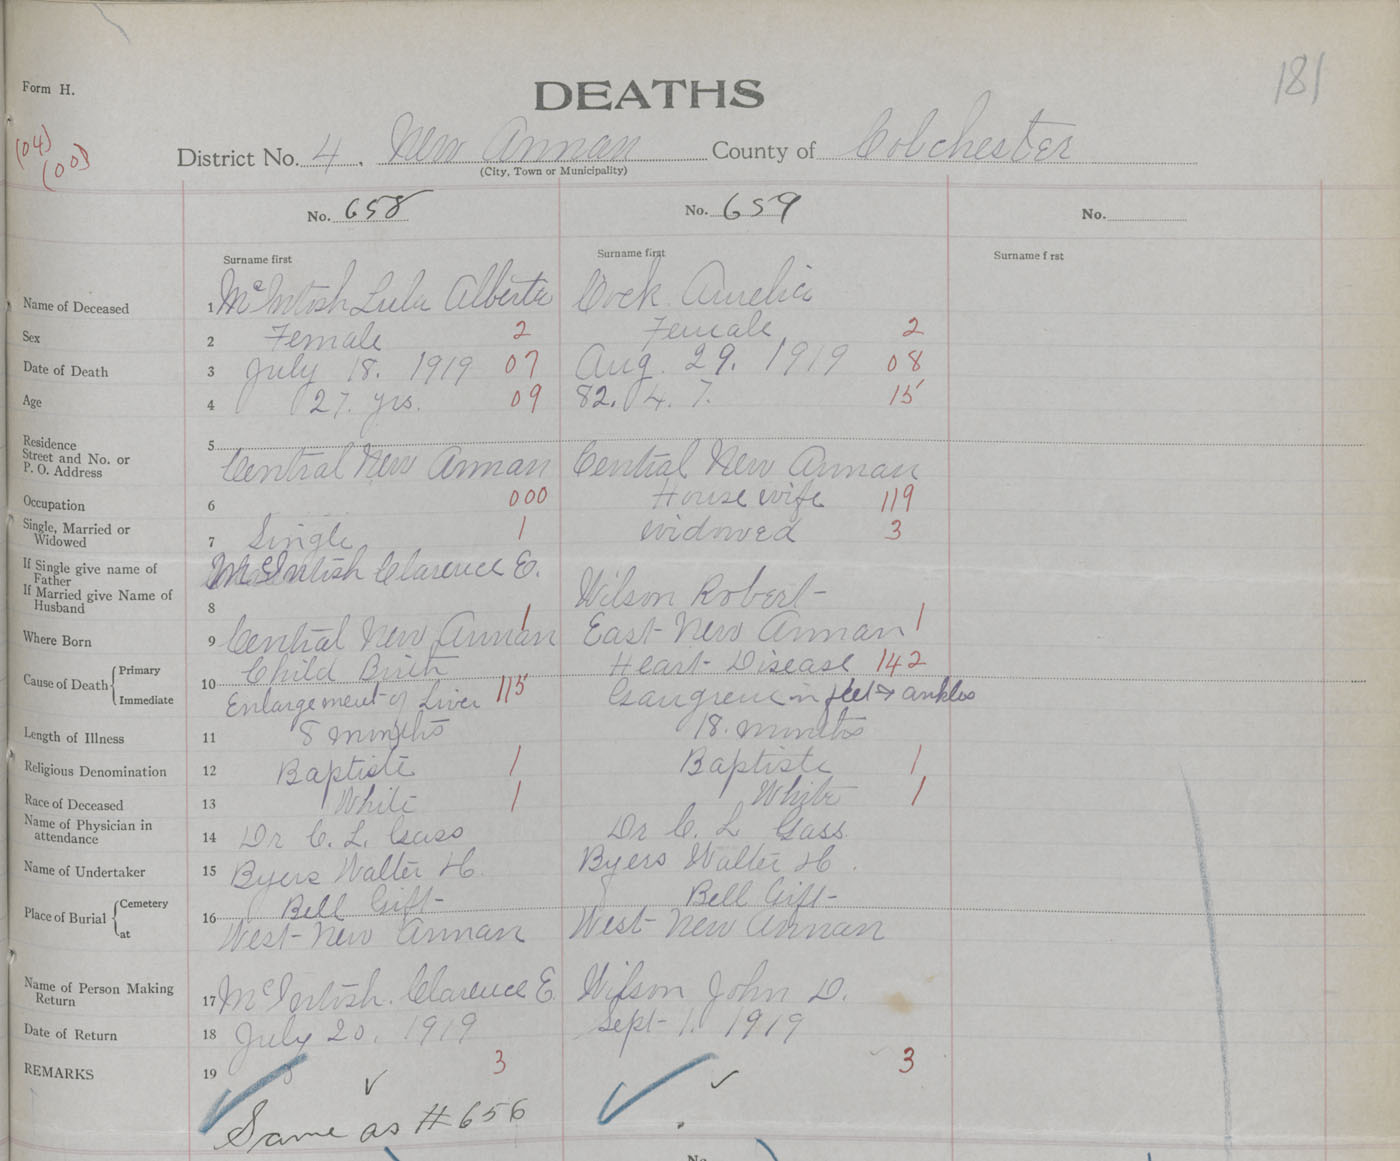 181
Form H.
DEATHS
(04)
(00)
District No. 4. New Annan County of Colchester
(City, Town or Municipality)
No. 658 No. 659 No.
Surname first Surname first Surname f rst
Name of Deceased 1 McIntosh Lula Alberta Cock Aurelia
Sex 2 Female 2 Female 2
Date of Death 3 July 18. 1919 07 Aug. 29. 1919 08
Age 4 27. yrs. 09 82. 4. 7. 15
Residence 5
Street and No. or
P. O. Address Central New Annan Central New Annan
Occupation 6 000 House wife 119
Single, Married or
Widowed 7 Single 1 Widowed 3
If Single give name of
Father McIntosh Clarence E.
If Married give Name of
Husband 8 Wilson Robert
Where Born 9 Central New Annan 1 East New Annan 1
Cause of Death Primary Child Birth Heart Disease 142
10
Immediate Enlargement of Liver 115 Gangrene in feet & ankles
Length of Illness 11 8 months 18. months
Religious Denomination 12 Baptiste 1 Baptiste 1
Race of Deceased 13 White 1 White 1
Name of Physician in
attendance 14 Dr C. L. Gass Dr C. L Gass.
Name of Undertaker 15 Byers Walter H. Byers Walter H.
Place of Burial Cemetery Bell Gift Bell Gift
16
at West New Annan West New Annan
Name of Person Making
Return 17 McIntosh. Clarence E. Wilson John D.
Date of Return 18 July 20. 1919 Sept 1. 1919
REMARKS 19 3 3
Same as #656
No.